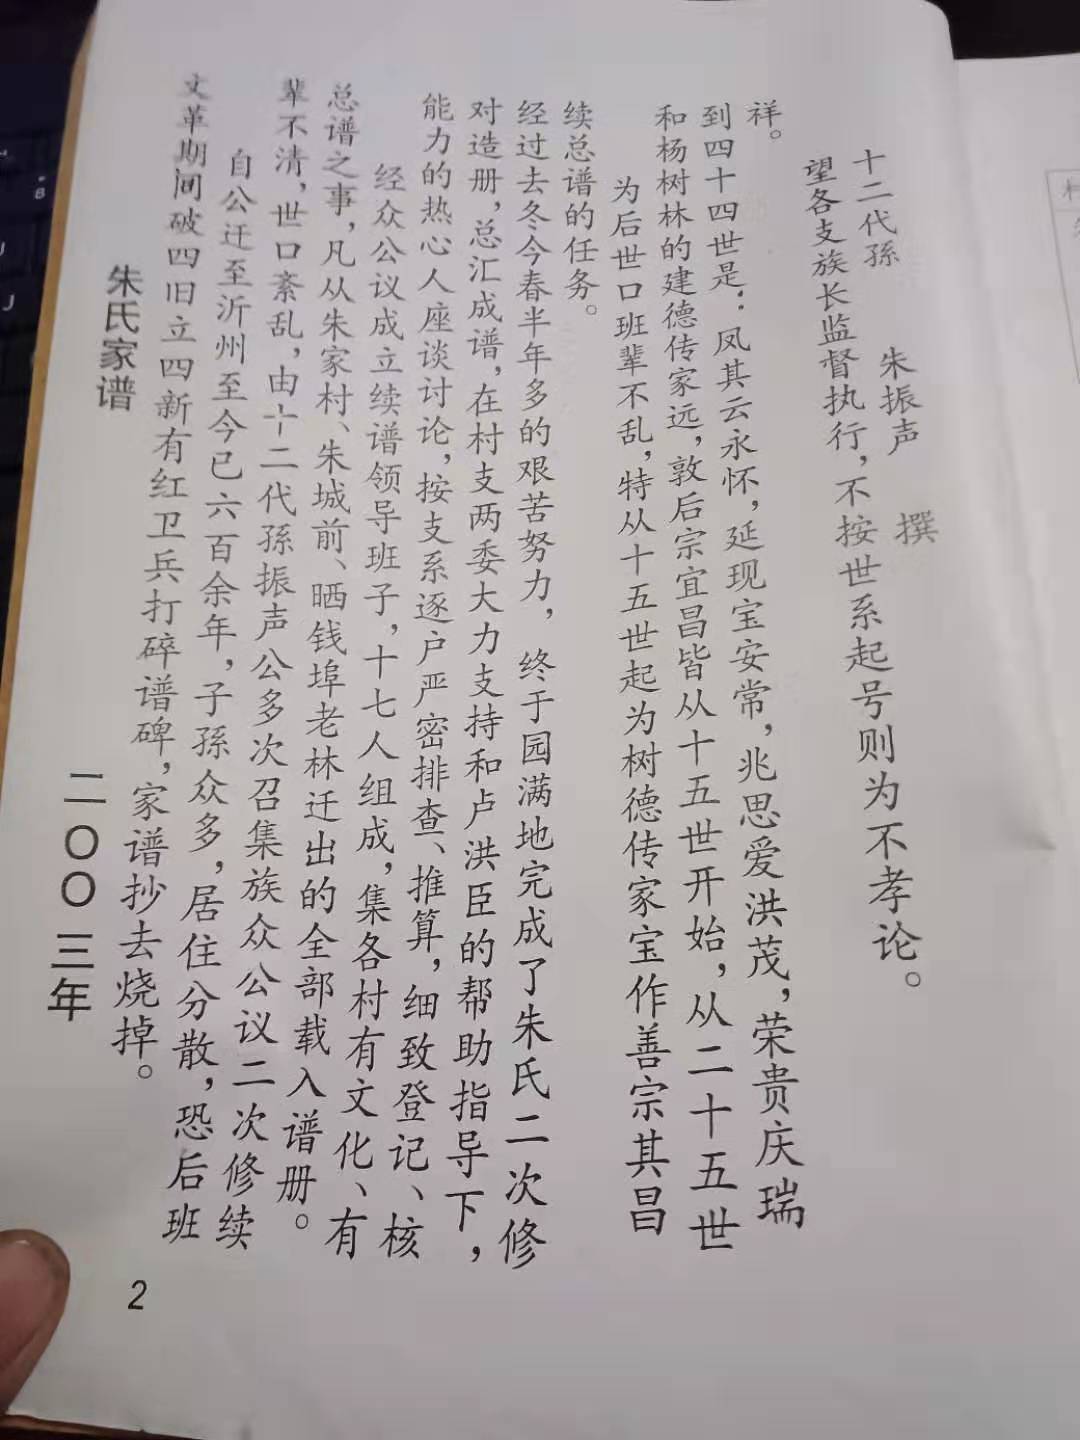 朱氏家谱 二〇〇三年
文革期间破四旧立四新有红卫兵打碎谱碑，家谱抄去烧掉。
自公迁至沂州至今已六百余年，子孫众多，居住分散，恐后班
辈不清，世口紊乱，由十二代孫振声公多次召集族众公议二次修续
总谱之事，凡从朱家村、朱城前、晒钱埠老林迁出的全部载入谱册。
经众公议成立续谱领导班子，十七人组成，集各村有文化、有
能力的热心人座谈讨论，按支系逐户严密排查、推算，细致登记、核
对造册，总汇成谱，在村支两委大力支持和卢洪臣的帮助指导下，
经过去冬今春半年多的艰苦努力，终于园满地完成了朱氏二次修
续总谱的任务。
为后世口班辈不乱，特从十五世起为树德传家宝作善宗其昌
和杨树林的建德传家远，敦后宗宜昌皆从十五世开始，从二十五世
到四十四世是：凤其云永怀，延现宝安常，兆思爱洪茂，荣贵庆瑞
祥。
望各支族长监督执行，不按世系起号则为不孝论。
十二代孫 朱振声 撰
2